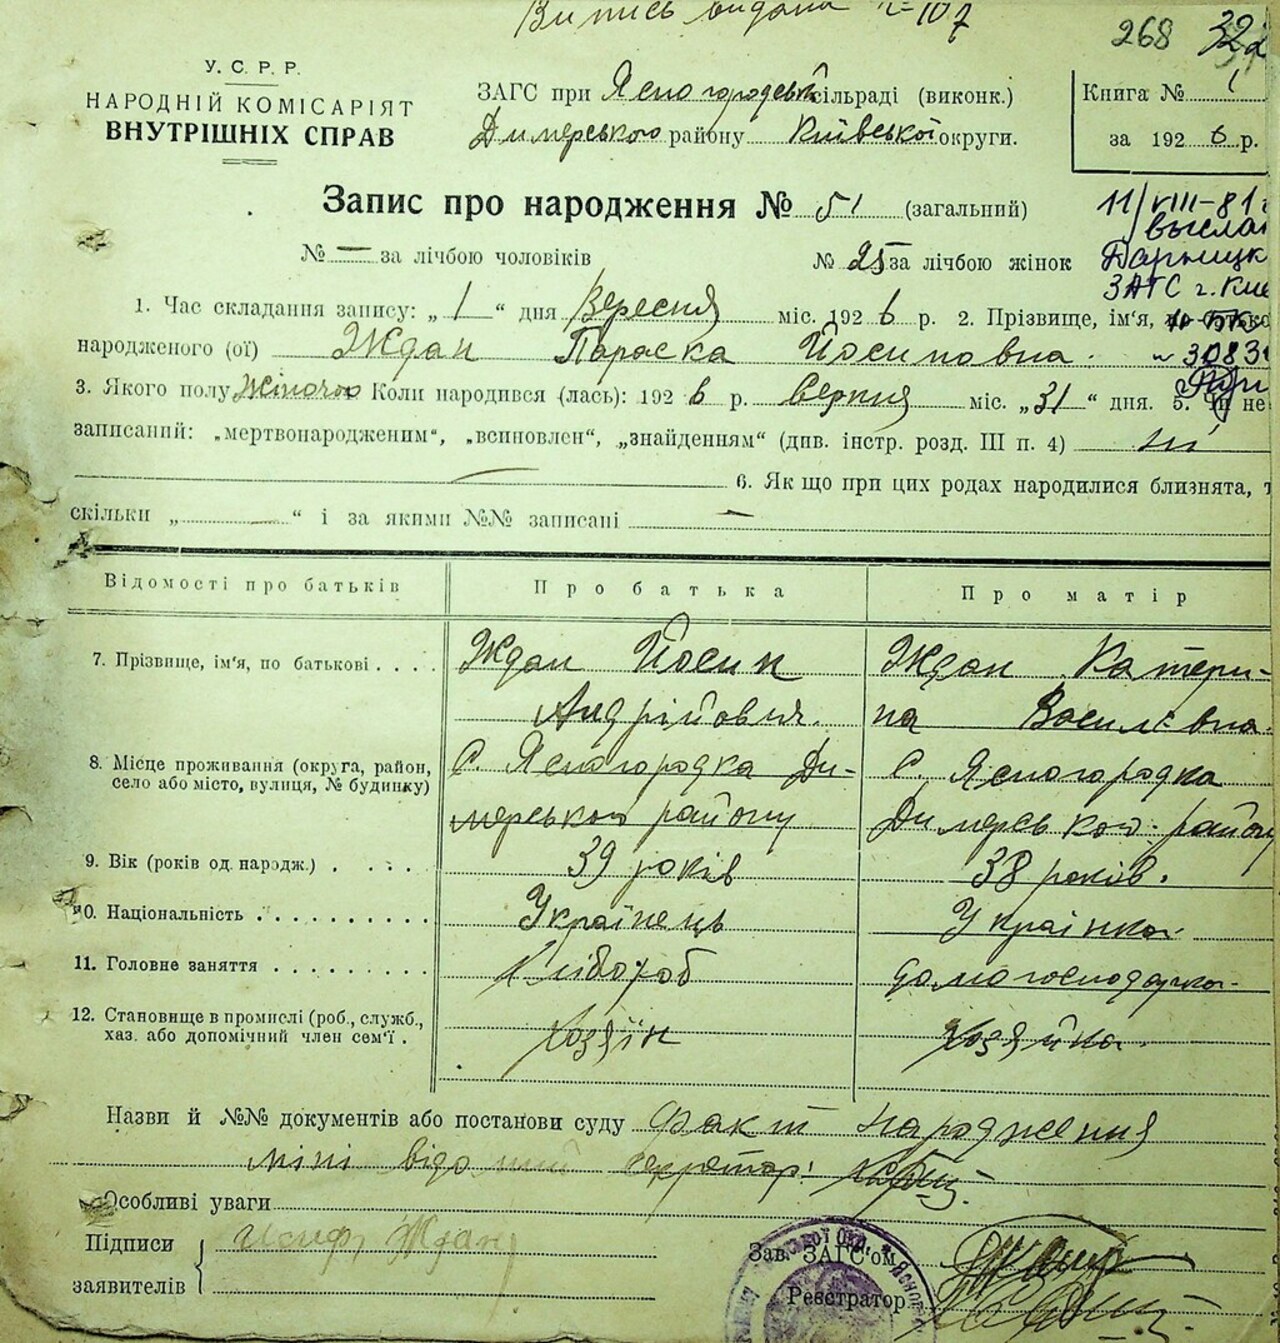 Випись видана № 107
268
У. С. Р. Р.
НАРОДНІЙ КОМІСАРІЯТ
ВНУТРІШНІХ СПРАВ
ЗАГС при Ясногородській сільраді (виконк.)
Димерського району Київської округи.
Книга № 1
за 1926 р.
Запис про народження № 51 (загальний)
11/VIII-81
выслан
Дарницк
ЗАГС г. Кие
№ — за лічбою чоловіків № 25 за лічбою жінок
1. Час складання запису: „1“ дня Вересня міс. 1926 р. 2. Прізвище, ім'я, по батькові
народженого (ої) Ждан Параска Йосиповна.
3. Якого полу Жіночого Коли народився (лась): 1926 р. серпня міс. „31“ дня. 5. Чи не
записаний: „мертвонародженим“, „всиновлен“, „знайденням“ (див. інстр. розд. III п. 4) ні
6. Як що при цих родах народилися близнята, т
скільки „ — “ і за якими №№ записані —
Відомості про батьків Про батька Про матір
7. Прізвище, ім'я, по батькові . . . . Ждан Йосип Ждан Катери-
Андрійович. на Василівна.
8. Місце проживання (округа, район, С. Ясногородка Ди- С. Ясногородка
село або місто, вулиця, № будинку) мерського району Димерського району
9. Вік (років од. народж.) . . . . 39 років 38 років.
10. Національність . . . . . . . . . . Українець Українка
11. Головне заняття . . . . . . . . . Хлібороб домогосподарка
12. Становище в промислі (роб., служб.,
хаз. або допомічний член сем'ї . Хозяїн Хозяйка.
Назви й №№ документів або постанови суду Факт народження
міні відомий секретар:
Особливі уваги
Підписи
заявителів
Иосиф Ждан
Зав. ЗАГС'ом
Реєстратор